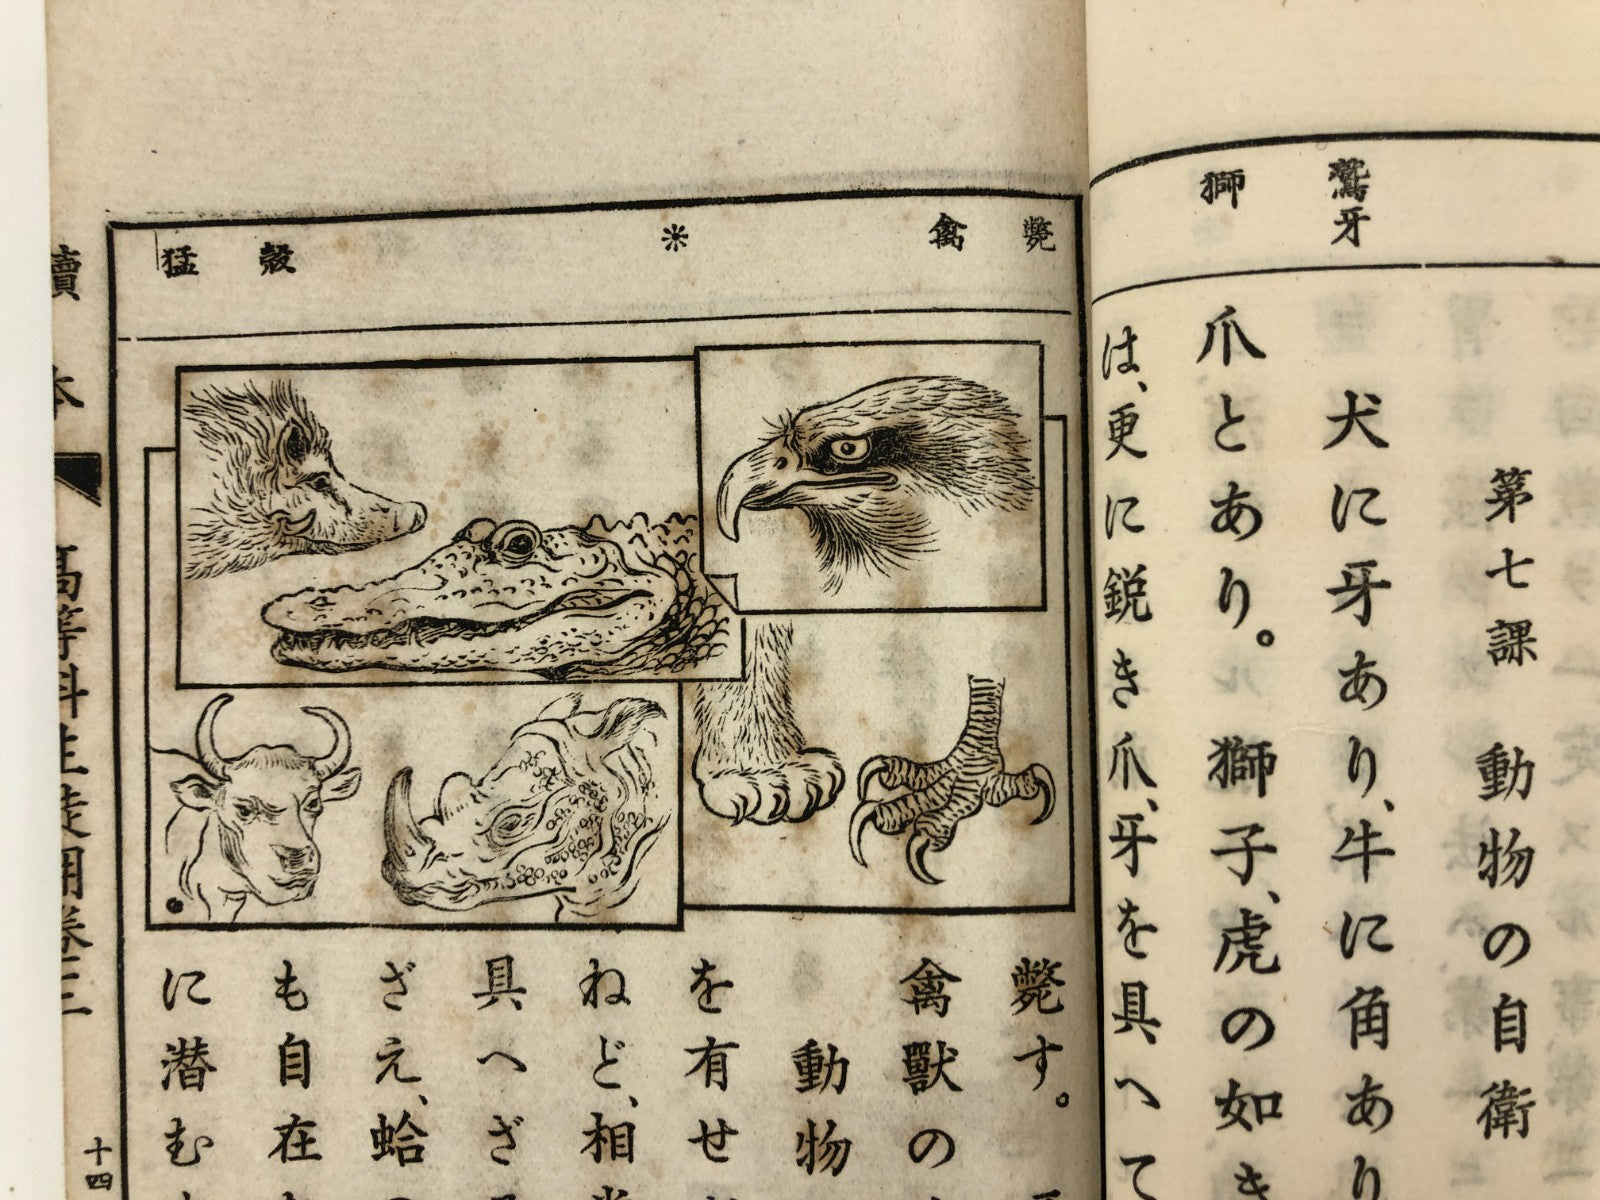 鷲牙
獅
第七課 動物の自衛
犬に牙あり、牛に角あり
爪とあり。獅子、虎の如き
は、更に鋭き爪、牙を具へて
斃
禽
※
殻
猛
斃す。
禽獸の
動物
を有せ
ねど、相
具へざ
ざえ、蛤
も自在
に潜む
讀本
高等科生徒用卷三
十四